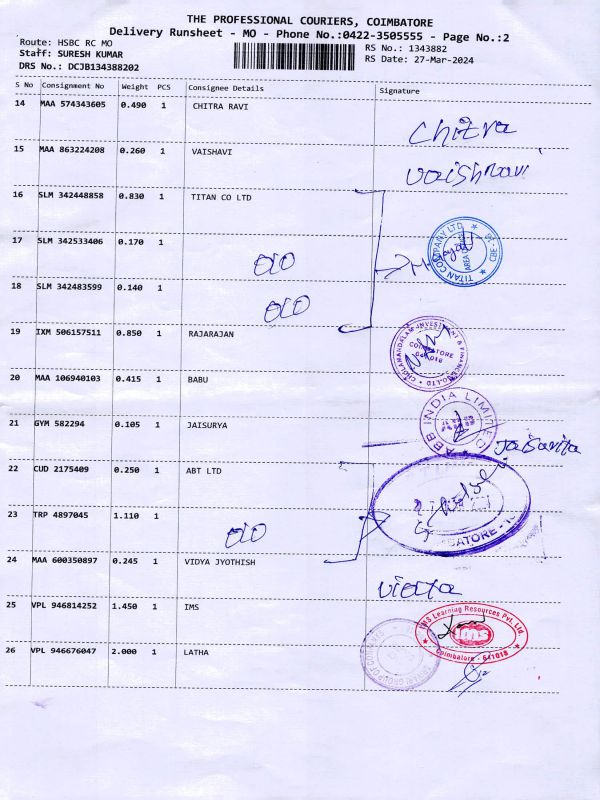 THE PROFESSIONAL COURIERS, COIMBATORE
Delivery Runsheet - MO - Phone No.:0422-3505555 - Page No.:2
Route: HSBC RC MO
RS No.: 1343882
Staff: SURESH KUMAR
RS Date: 27-Mar-2024
DRS No.: DCJB134388202
S No Consignment No Weight PCS Consignee Details Signature
14 MAA 574343605 0.490 1 CHITRA RAVI
Chitra
15 MAA 863224208 0.260 1 VAISHAVI
Vaishnavi
16 SLM 342448858 0.830 1 TITAN CO LTD
17 SLM 342533406 0.170 1
TITAN COMPANY LTD
18 SLM 342483599 0.140 1
19 IXM 506157511 0.850 1 RAJARAJAN
CHOLAMANDALAM INVESTMENT & FINANCE CO. LTD
COIMBATORE
20 MAA 106940103 0.415 1 BABU
21 GYM 582294 0.105 1 JAISURYA
ABB INDIA LIMITED
22 CUD 2175409 0.250 1 ABT LTD
23 TRP 4897045 1.110 1
24 MAA 600350897 0.245 1 VIDYA JYOTHISH
25 VPL 946814252 1.450 1 IMS
IMS Learning Resources Pvt. Ltd.
Coimbatore - 641018
26 VPL 946676047 2.000 1 LATHA